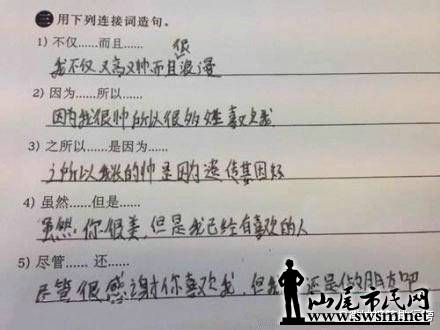 三 用下列连接词造句。
1) 不仅……而且……
我不仅又高又帅而且很浪漫
2) 因为……所以……
因为我很帅所以很多女生喜欢我
3) 之所以……是因为……
之所以我长的帅是因为遗传基因好
4) 虽然……但是……
虽然你很美,但是我已经有喜欢的人
5) 尽管…… 还……
尽管很感谢你喜欢我,但我 还是做朋友吧
山尾市民网
www.swsm.net